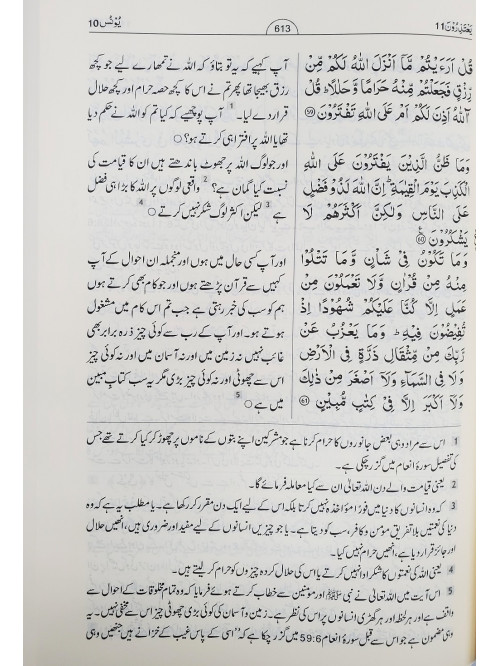 يَعْتَذِرُوْنَ 11
613
يُوْنُس 10
قُلْ اَرَءَيْتُمْ مَّآ اَنْزَلَ اللّٰهُ لَكُمْ مِّنْ
رِّزْقٍ فَجَعَلْتُمْ مِّنْهُ حَرَامًا وَّحَلٰلًا ؕ قُلْ
آٰللّٰهُ اَذِنَ لَكُمْ اَمْ عَلَى اللّٰهِ تَفْتَرُوْنَ ﴿59﴾
وَمَا ظَنُّ الَّذِيْنَ يَفْتَرُوْنَ عَلَى اللّٰهِ
الْكَذِبَ يَوْمَ الْقِيٰمَةِ ؕ اِنَّ اللّٰهَ لَذُوْ فَضْلٍ
عَلَى النَّاسِ وَلٰكِنَّ اَكْثَرَهُمْ لَا
يَشْكُرُوْنَ ﴿60﴾
وَمَا تَكُوْنُ فِيْ شَاْنٍ وَّمَا تَتْلُوْا
مِنْهُ مِنْ قُرْاٰنٍ وَّلَا تَعْمَلُوْنَ مِنْ
عَمَلٍ اِلَّا كُنَّا عَلَيْكُمْ شُهُوْدًا اِذْ
تُفِيْضُوْنَ فِيْهِ ؕ وَمَا يَعْزُبُ عَنْ
رَّبِّكَ مِنْ مِّثْقَالِ ذَرَّةٍ فِي الْاَرْضِ
وَلَا فِي السَّمَآءِ وَلَآ اَصْغَرَ مِنْ ذٰلِكَ
وَلَآ اَكْبَرَ اِلَّا فِيْ كِتٰبٍ مُّبِيْنٍ ﴿61﴾
آپ کہیے کہ یہ تو بتاؤ کہ اللہ نے تمہارے لیے جو کچھ
رزق بھیجا تھا پھر تم نے اس کا کچھ حصہ حرام اور کچھ حلال
قرار دے لیا۔ 1 آپ پوچھیے کہ کیا تم کو اللہ نے حکم دیا
تھا یا اللہ پر افترا ہی کرتے ہو؟ ○
اور جو لوگ اللہ پر جھوٹ باندھتے ہیں ان کا قیامت کی
نسبت کیا گمان ہے؟ 2 واقعی لوگوں پر اللہ کا بڑا ہی فضل
ہے 3 لیکن اکثر لوگ شکر نہیں کرتے 4 ○
اور آپ کسی حال میں ہوں اور منجملہ ان احوال کے آپ
کہیں سے قرآن پڑھتے ہوں اور جو کام بھی کرتے ہوں
ہم کو سب کی خبر رہتی ہے جب تم اس کام میں مشغول
ہوتے ہو۔ اور آپ کے رب سے کوئی چیز ذرہ برابر بھی
غائب نہیں نہ زمین میں اور نہ آسمان میں اور نہ کوئی چیز
اس سے چھوٹی اور نہ کوئی چیز بڑی مگر یہ سب کتاب مبین
میں ہے 5 ○
1 اس سے مراد وہی بعض جانوروں کا حرام کرنا ہے جو مشرکین اپنے بتوں کے ناموں پر چھوڑ کر کیا کرتے تھے جس
کی تفصیل سورۂ انعام میں گزر چکی ہے۔
2 یعنی قیامت والے دن اللہ تعالیٰ ان سے کیا معاملہ فرمائے گا۔
3 کہ وہ انسانوں کا دنیا میں فوراً مؤاخذہ نہیں کرتا بلکہ اس کے لیے ایک دن مقرر کر رکھا ہے۔ یا مطلب یہ ہے کہ وہ
دنیا کی نعمتیں بلا تفریق مومن و کافر، سب کو دیتا ہے۔ یا جو چیزیں انسانوں کے لیے مفید اور ضروری ہیں، انھیں حلال
اور جائز قرار دیا ہے، انھیں حرام نہیں کیا۔
4 یعنی اللہ کی نعمتوں کا شکر ادا نہیں کرتے یا اس کی حلال کردہ چیزوں کو حرام کر لیتے ہیں۔
5 اس آیت میں اللہ تعالیٰ نے نبی ﷺ اور مومنین سے خطاب کرتے ہوئے فرمایا کہ وہ تمام مخلوقات کے احوال سے
واقف ہے اور ہر لحظہ اور ہر گھڑی انسانوں پر اس کی نظر ہے۔ زمین و آسمان کی کوئی بڑی چھوٹی چیز اس سے مخفی نہیں۔ یہ
وہی مضمون ہے جو اس سے قبل سورۂ انعام 59:6 میں گزر چکا ہے کہ ”اسی کے پاس غیب کے خزانے ہیں جنھیں وہی